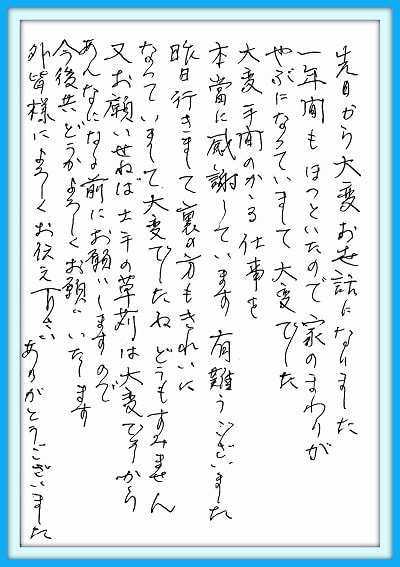 先日から大変お世話になりました
一年間もほっといたので家のまわりが
やぶになっていまして大変でした
大変手間のかゝる仕事を
本當に感謝しています 有難うございました
昨日行きまして裏の方もきれいに
なっていまして大変でしたね どうもすみません
又お願いせねば土手の草刈は大変ですから
あんなになる前にお願いしますので
今後共どうかよろしくお願いいたします
外皆様によろしくお伝え下さい
ありがとうございました